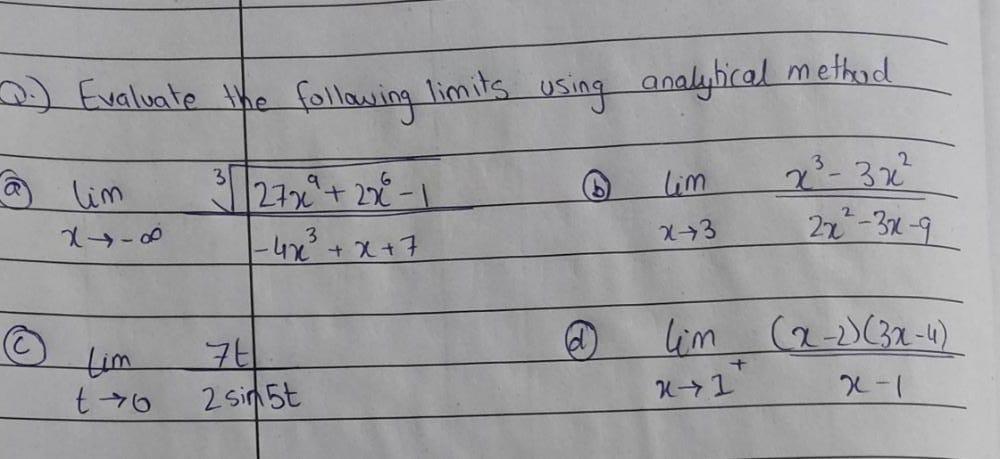 Q.) Evaluate the following limits using analytical method
(a) lim x→-∞ ∛(27x⁹ + 2x⁶ - 1) / (-4x³ + x + 7) (b) lim x→3 (x³ - 3x²) / (2x² - 3x - 9)
(c) lim t→0 7t / (2 sin 5t) (d) lim x→1⁺ (x-2)(3x-4) / (x-1)